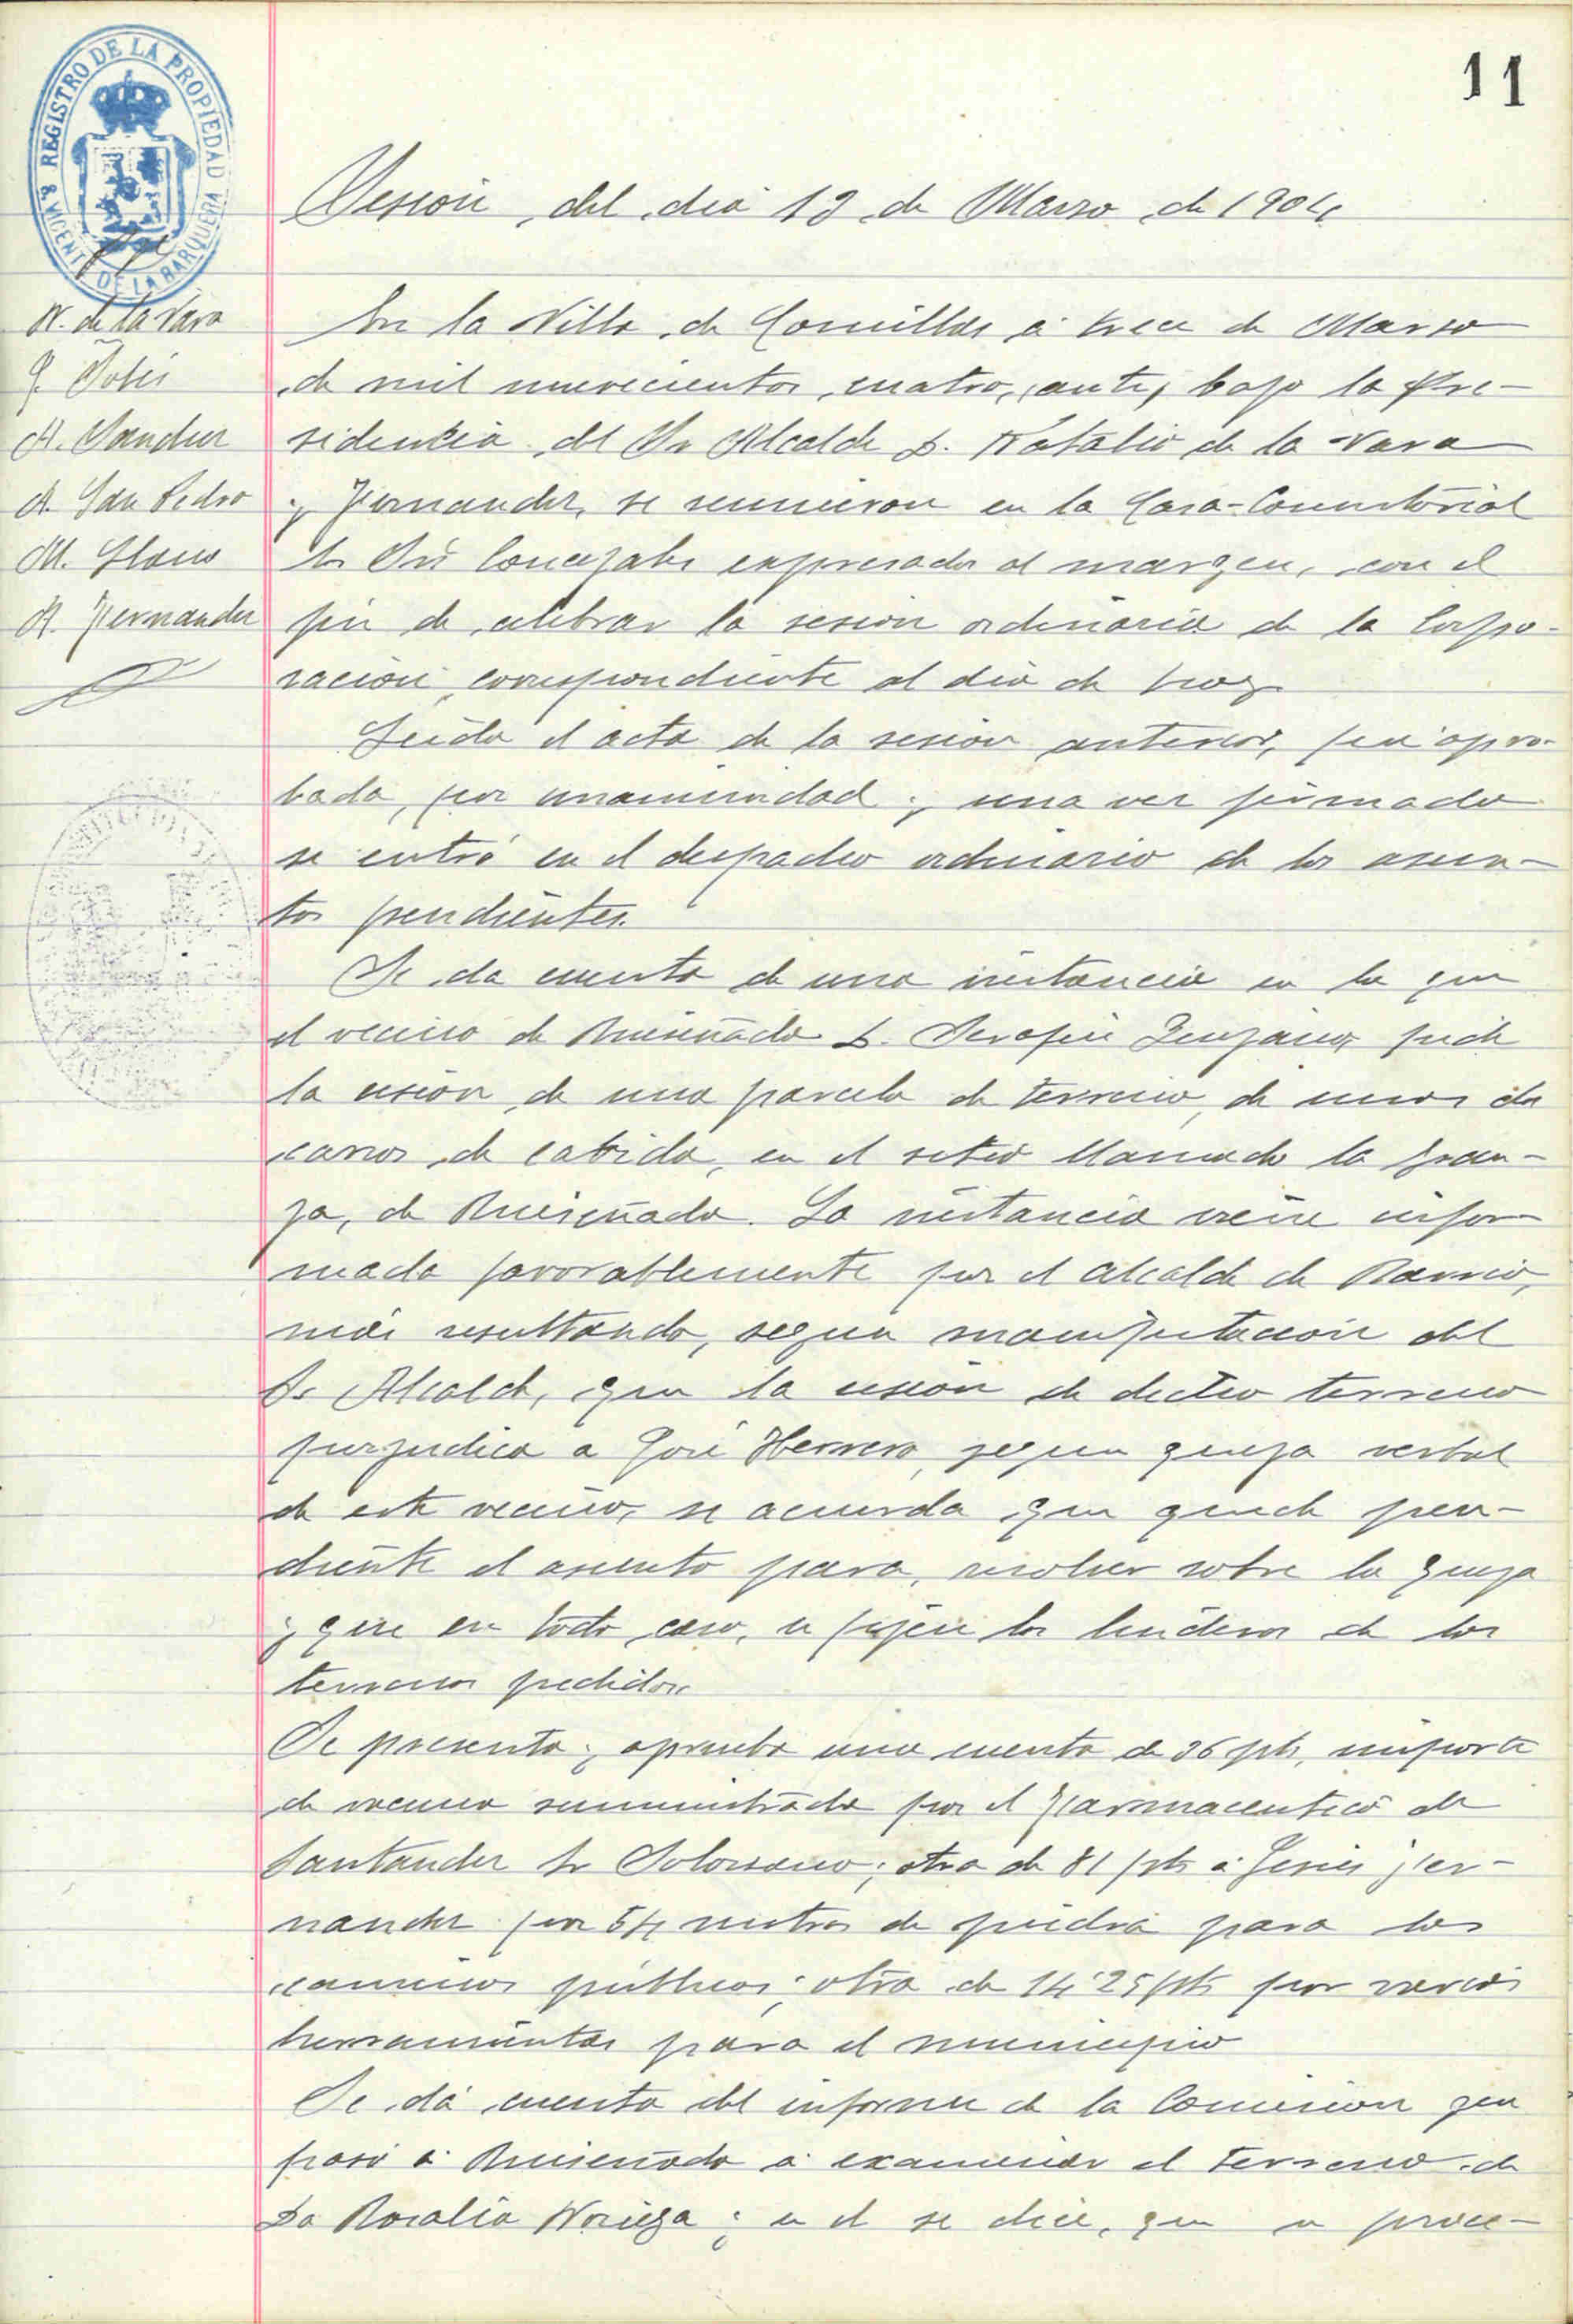 11
REGISTRO DE LA PROPIEDAD
Sn VICENTE DE LA BARQUERA
Sesión del dia 13 de Marzo de 1904
N. de la Vara
A. Sanchez
A. San Pedro
M. Llano
A. Fernandez
En la Villa de Comillas á trece de Marzo
de mil novecientos cuatro, ante, bajo la Pre-
sidencia del Sr Alcalde D. Natalio de la Vara
y Fernandez, se reunieron en la Casa-Consistorial
los Srs Concejales expresados al margen, con el
fin de celebrar la sesión ordinaria de la Corpo-
ración correspondiente al dia de hoy
Leida el acta de la sesión anterior, fué apro-
bada, por unanimidad y una vez firmada
se entró en el despacho ordinario de los asun-
tos pendientes.
Se da cuenta de una instancia en la que
el vecino de Ruiseñada D. Serafin pide
la cesión de una parcela de terreno, de unos dos
carros de cabida, en el sitio llamado la Gran-
ja, de Ruiseñada. La instancia viene infor-
mada favorablemente por el alcalde de Barrio,
más resultando, segun manifestación del
Sr Alcalde, que la cesión de dicho terreno
perjudica a José Herrero, segun queja verbal
de este vecino, se acuerda que quede pen-
diente el asunto para, resolver sobre la queja
y que en todo caso, se fijen los linderos de los
terrenos pedidos.
Se presenta y aprueba una cuenta de 36 pts, importe
de vacuna suministrada por el Farmaceutico de
Santander Sr Solorzano; otra de 81 pts á Jesús Fer-
nandez por 54 metros de piedra para los
caminos públicos; otra de 14'25 pts por varias
herramientas para el municipio
Se dá cuenta del informe de la Comisión que
pasó á Ruiseñada á examinar el terreno de
Da Rosalía Noriega; en el se dice, que se proce-